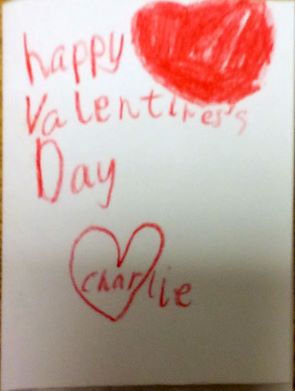 happy
Valentines's
Day
charlie